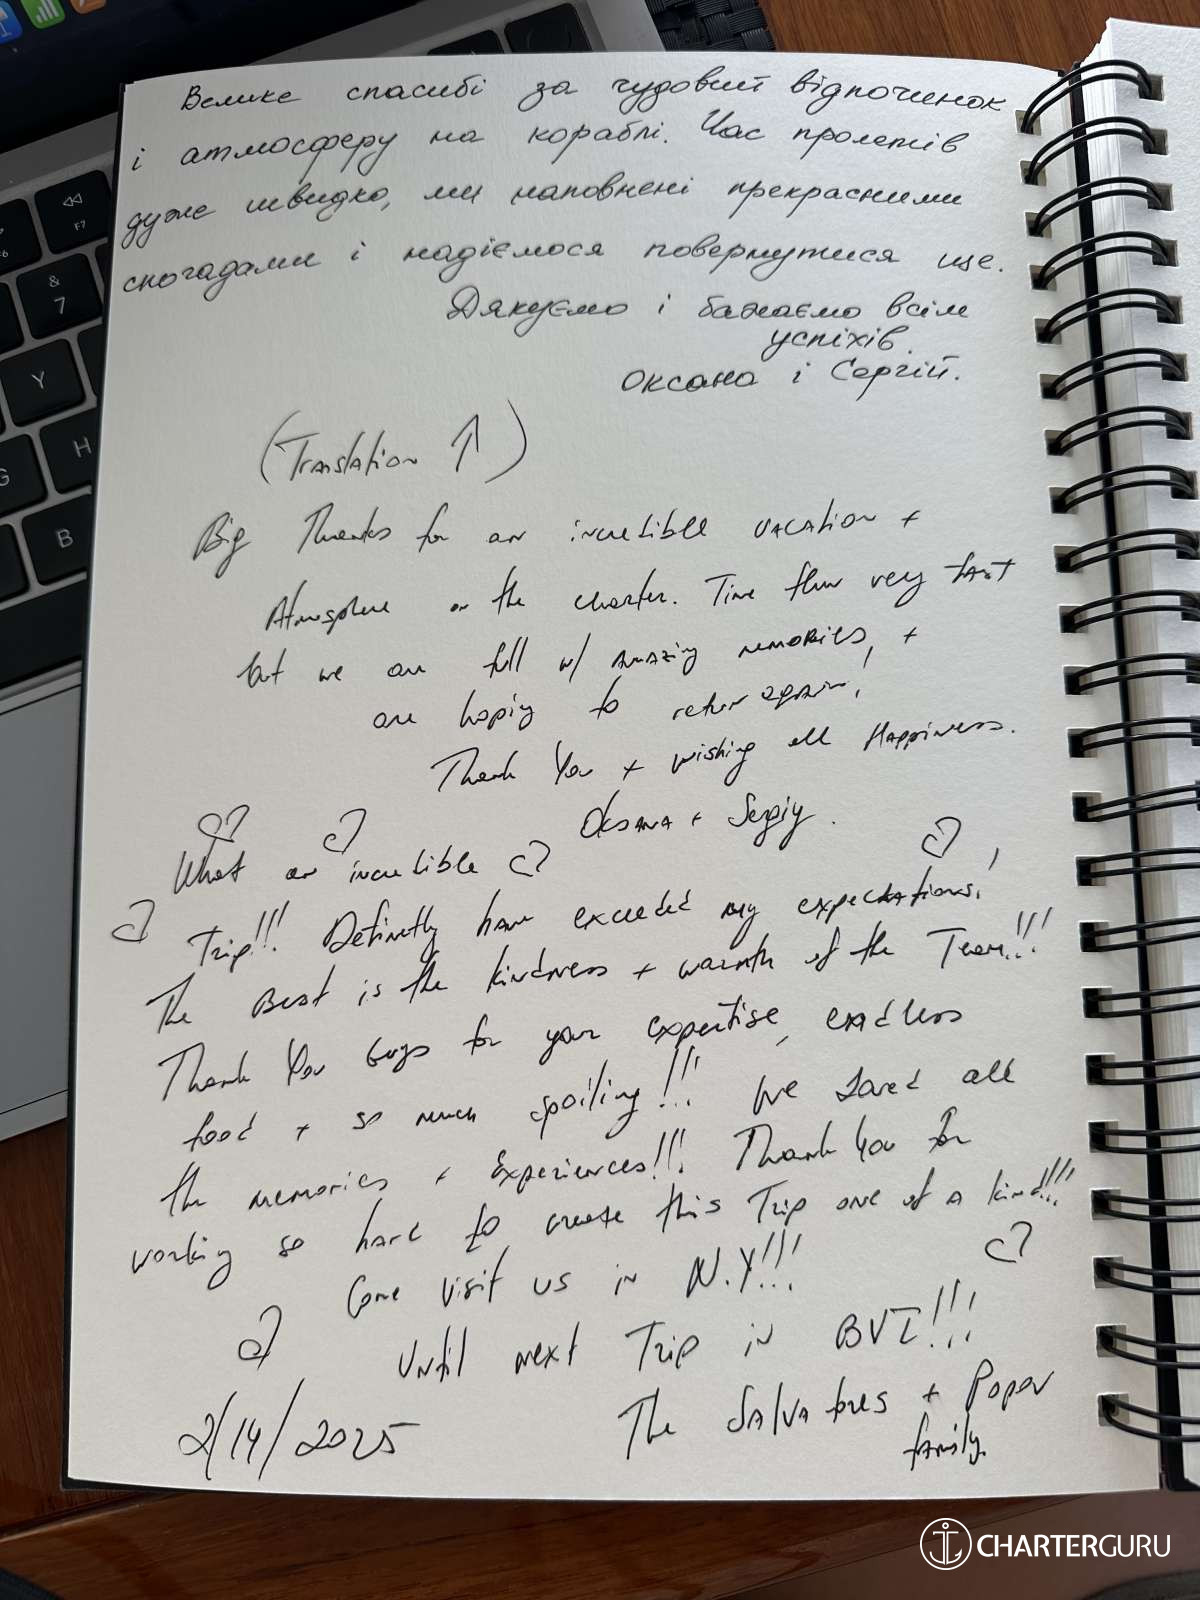 Велике спасибі за чудовий відпочинок
і атмосферу на кораблі. Час пролетів
дуже швидко, ми наповнені прекрасними
спогадами і надіємося повернутися ще.
Дякуємо і бажаємо всім
успіхів.
Оксана і Сергій.
(Translation ↑)
Big Thanks for an incredible vacation +
Atmosphere on the charter. Time flew very fast
but we are full w/ amazing memories, +
are hoping to return again!
Thank You + wishing all Happiness.
Oksana + Sergiy.
What an incredible
Trip!!! Definetly have exceeded my expectations!
The Best is the kindness + warmth of the Team!!!
Thank You Guys for your expertise, endless
food + so much spoiling!!! We Loved all
the memories + Experiences!!! Thank You for
working so hard to create this Trip one of a kind!!!
Come visit us in N.Y!!!
Until next Trip in BVI!!!
2/14/2025 The Salvatores + Popov
family.
CHARTERGURU
F7
&
7
Y
H
G
B